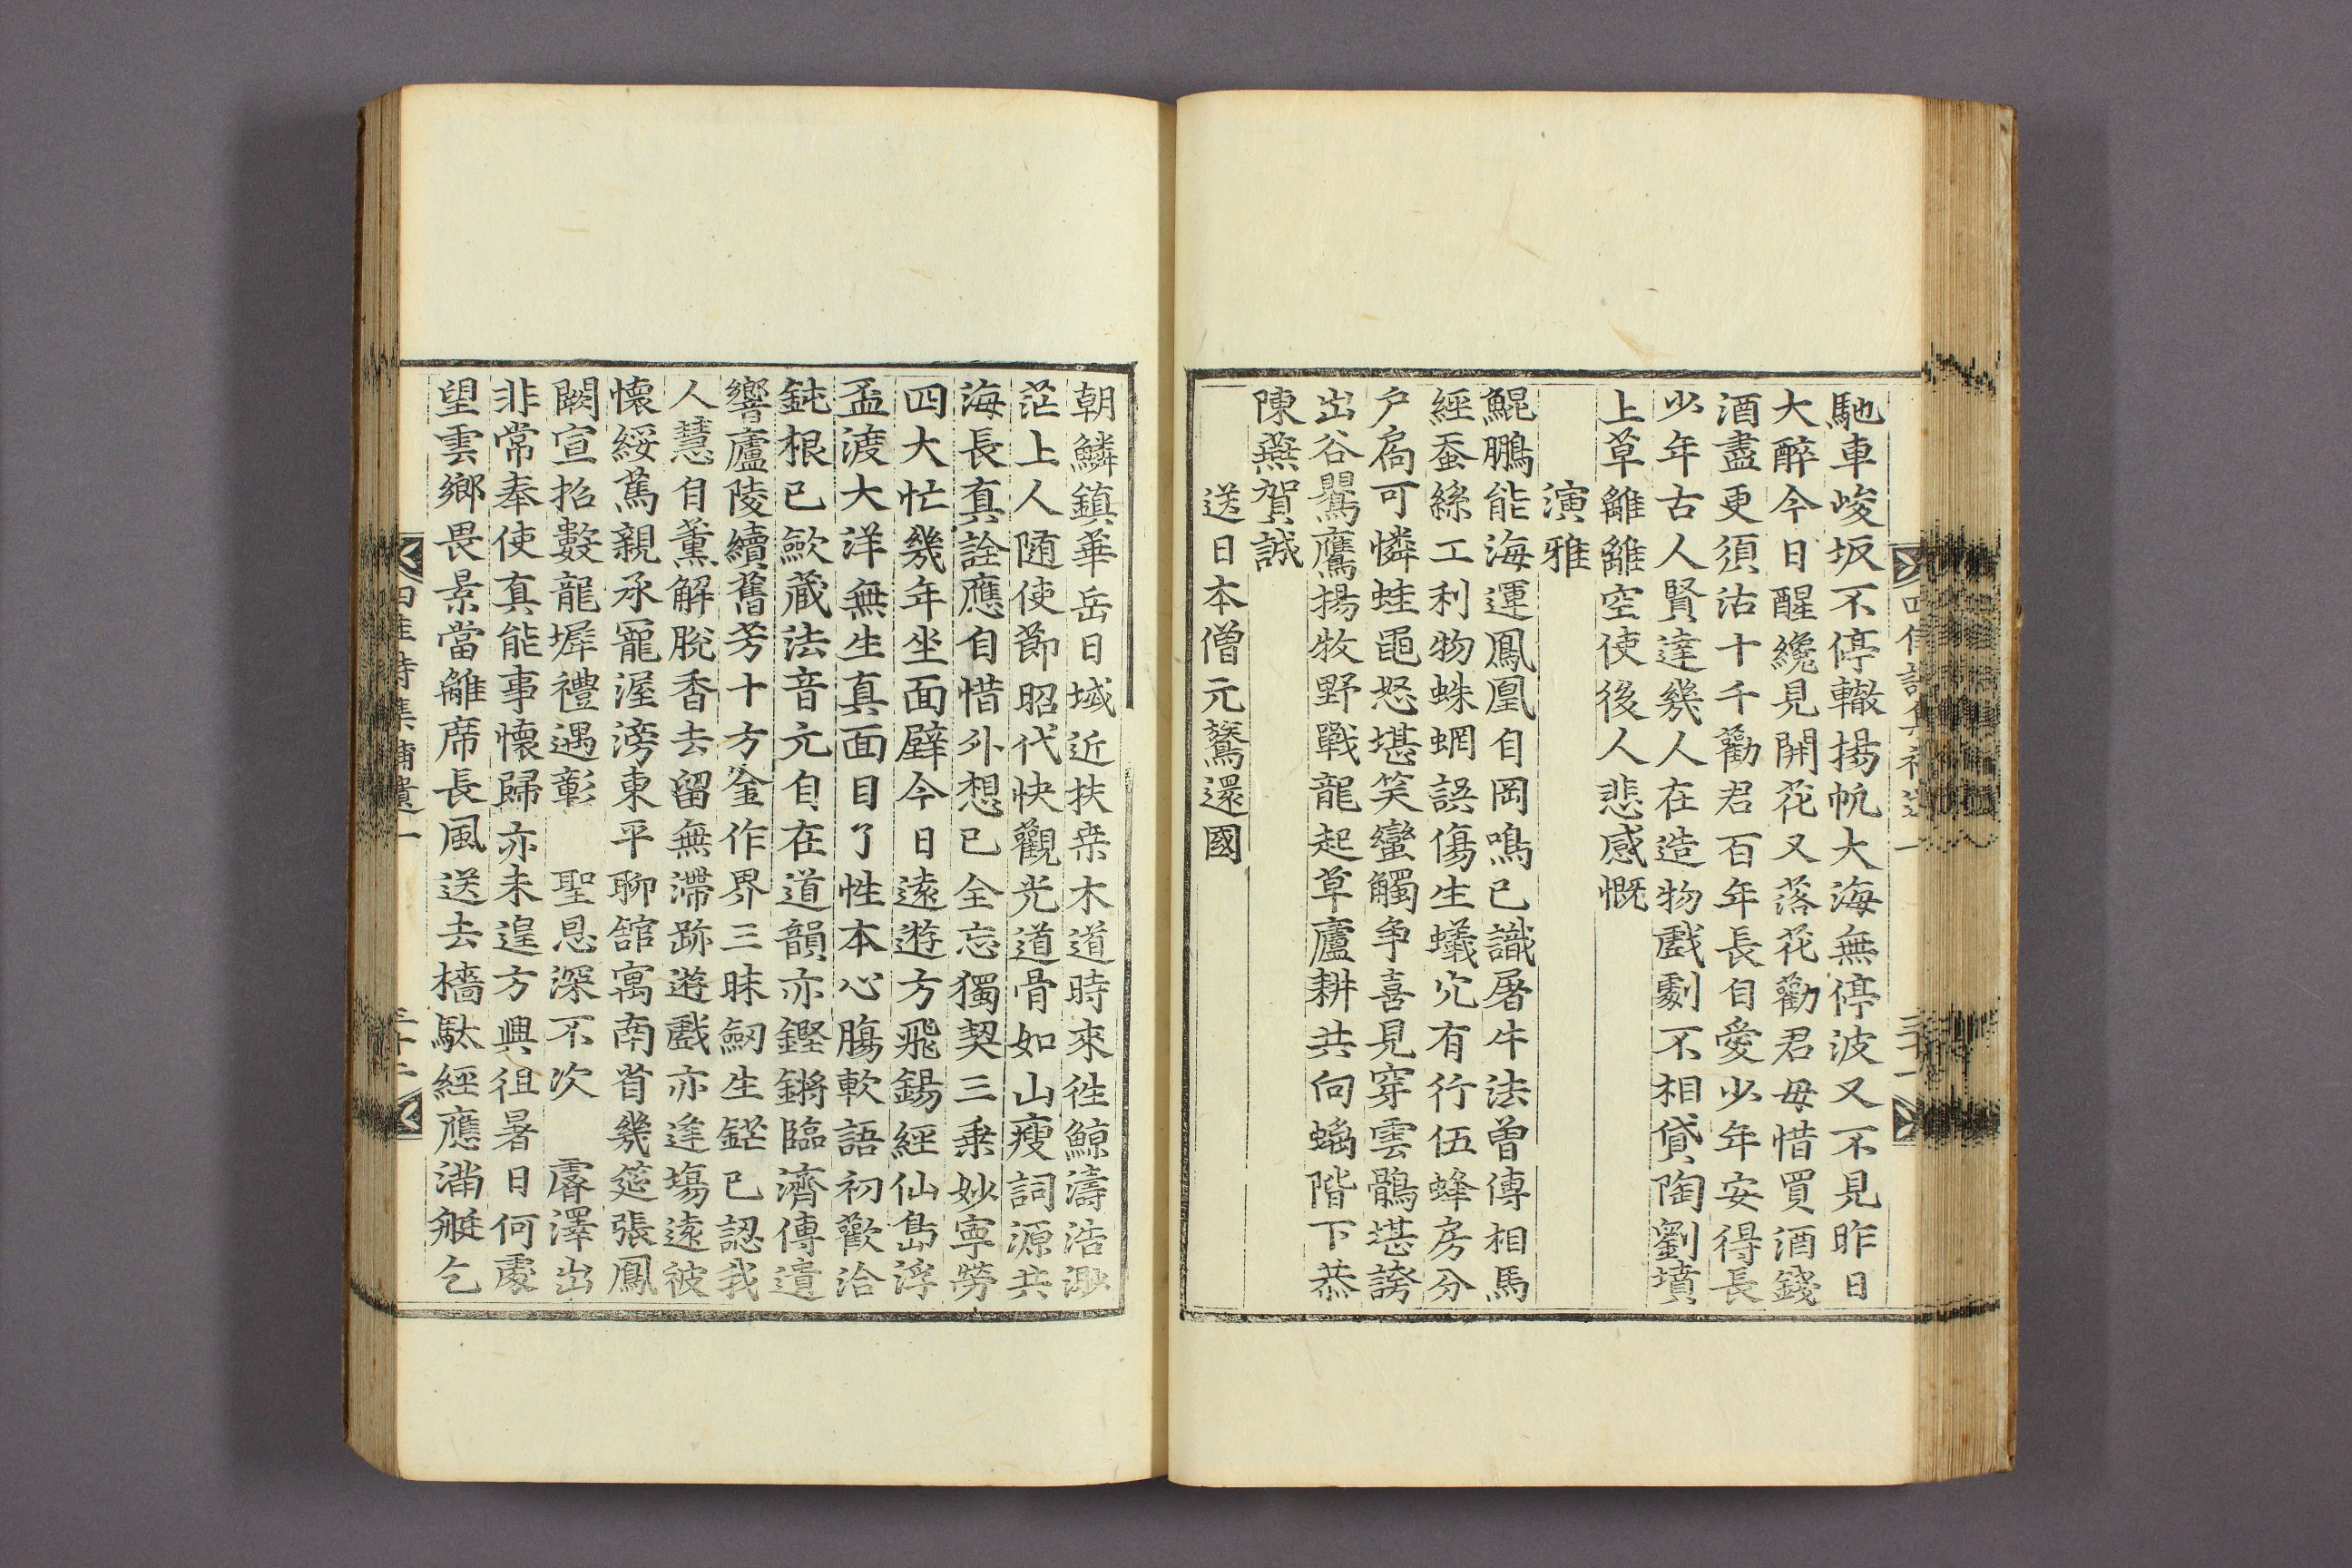 馳車峻坂不停轍揚帆大海無停波又不見昨日
大醉今日醒纔見開花又落花勸君毋惜買酒錢
酒盡更須沽十千勸君百年長自愛少年安得長
少年古人賢達幾人在造物戲劇不相貸陶劉墳
上草離離空使後人悲感慨
演雅
鯤鵬能海運鳳凰自岡鳴已識屠牛法曾傳相馬
經蚕絲工利物蛛網誤傷生蟻穴有行伍蜂房分
戶扃可憐蛙黽怒堪笑蠻觸争喜見穿雲鶻堪誇
出谷鸎鷹揚牧野戰龍起草廬耕共向螭階下恭
陳燕賀誠
送日本僧元鶖還國
朝鱗鎮華岳日域近扶桒木道時來徃鯨濤浩渺
茫上人随使節昭代快觀光道骨如山瘦詞源共
海長真詮應自惜外想已全忘獨契三乗妙寧勞
四大忙幾年坐面壁今日遠遊方飛錫經仙島浮
盃渡大洋無生真面目了性本心膓軟語初歡洽
鈍根已歛藏法音元自在道韻亦鏗鏘臨濟傳遺
響廬陵續舊芳十方金作界三昧劒生鋩已認我
人慧自薰解脫香去留無滯跡遊戲亦逢場遠被
懷綏荐親承寵渥滂東平聊舘寓南首幾筵張鳳
闕宣招數龍墀禮遇彰 聖恩深不次 睿澤出
非常奉使真能事懷歸亦未遑方興徂暑日何處
望雲鄉畏景當離席長風送去檣馱經應滿艇乞
四佳詩集補遺一
三十二